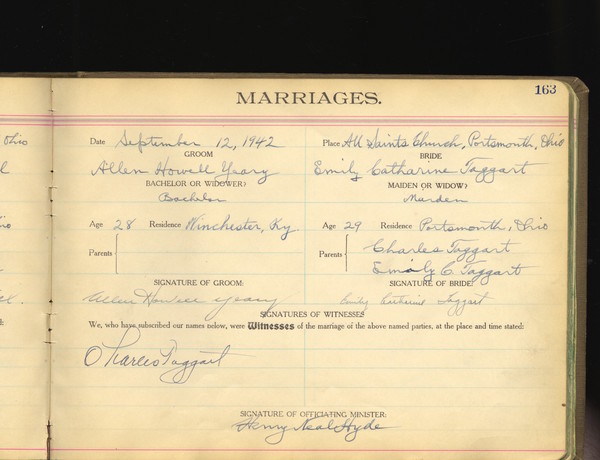 163
MARRIAGES.
Ohio
Date September 12, 1942 Place All Saints Church, Portsmouth, Ohio
GROOM BRIDE
Allen Howell Yeary Emily Catharine Taggart
BACHELOR OR WIDOWER? MAIDEN OR WIDOW?
Bachelor Maiden
Age 28 Residence Winchester, Ky. Age 29 Residence Portsmouth, Ohio
Parents Parents Charles Taggart
Emily C Taggart
SIGNATURE OF GROOM: SIGNATURE OF BRIDE:
Allen Howell Yeary Emily Catharine Taggart
SIGNATURES OF WITNESSES
We, who have subscribed our names below, were Witnesses of the marriage of the above named parties, at the place and time stated:
Charles Taggart
SIGNATURE OF OFFICIATING MINISTER:
Henry Neal Hyde